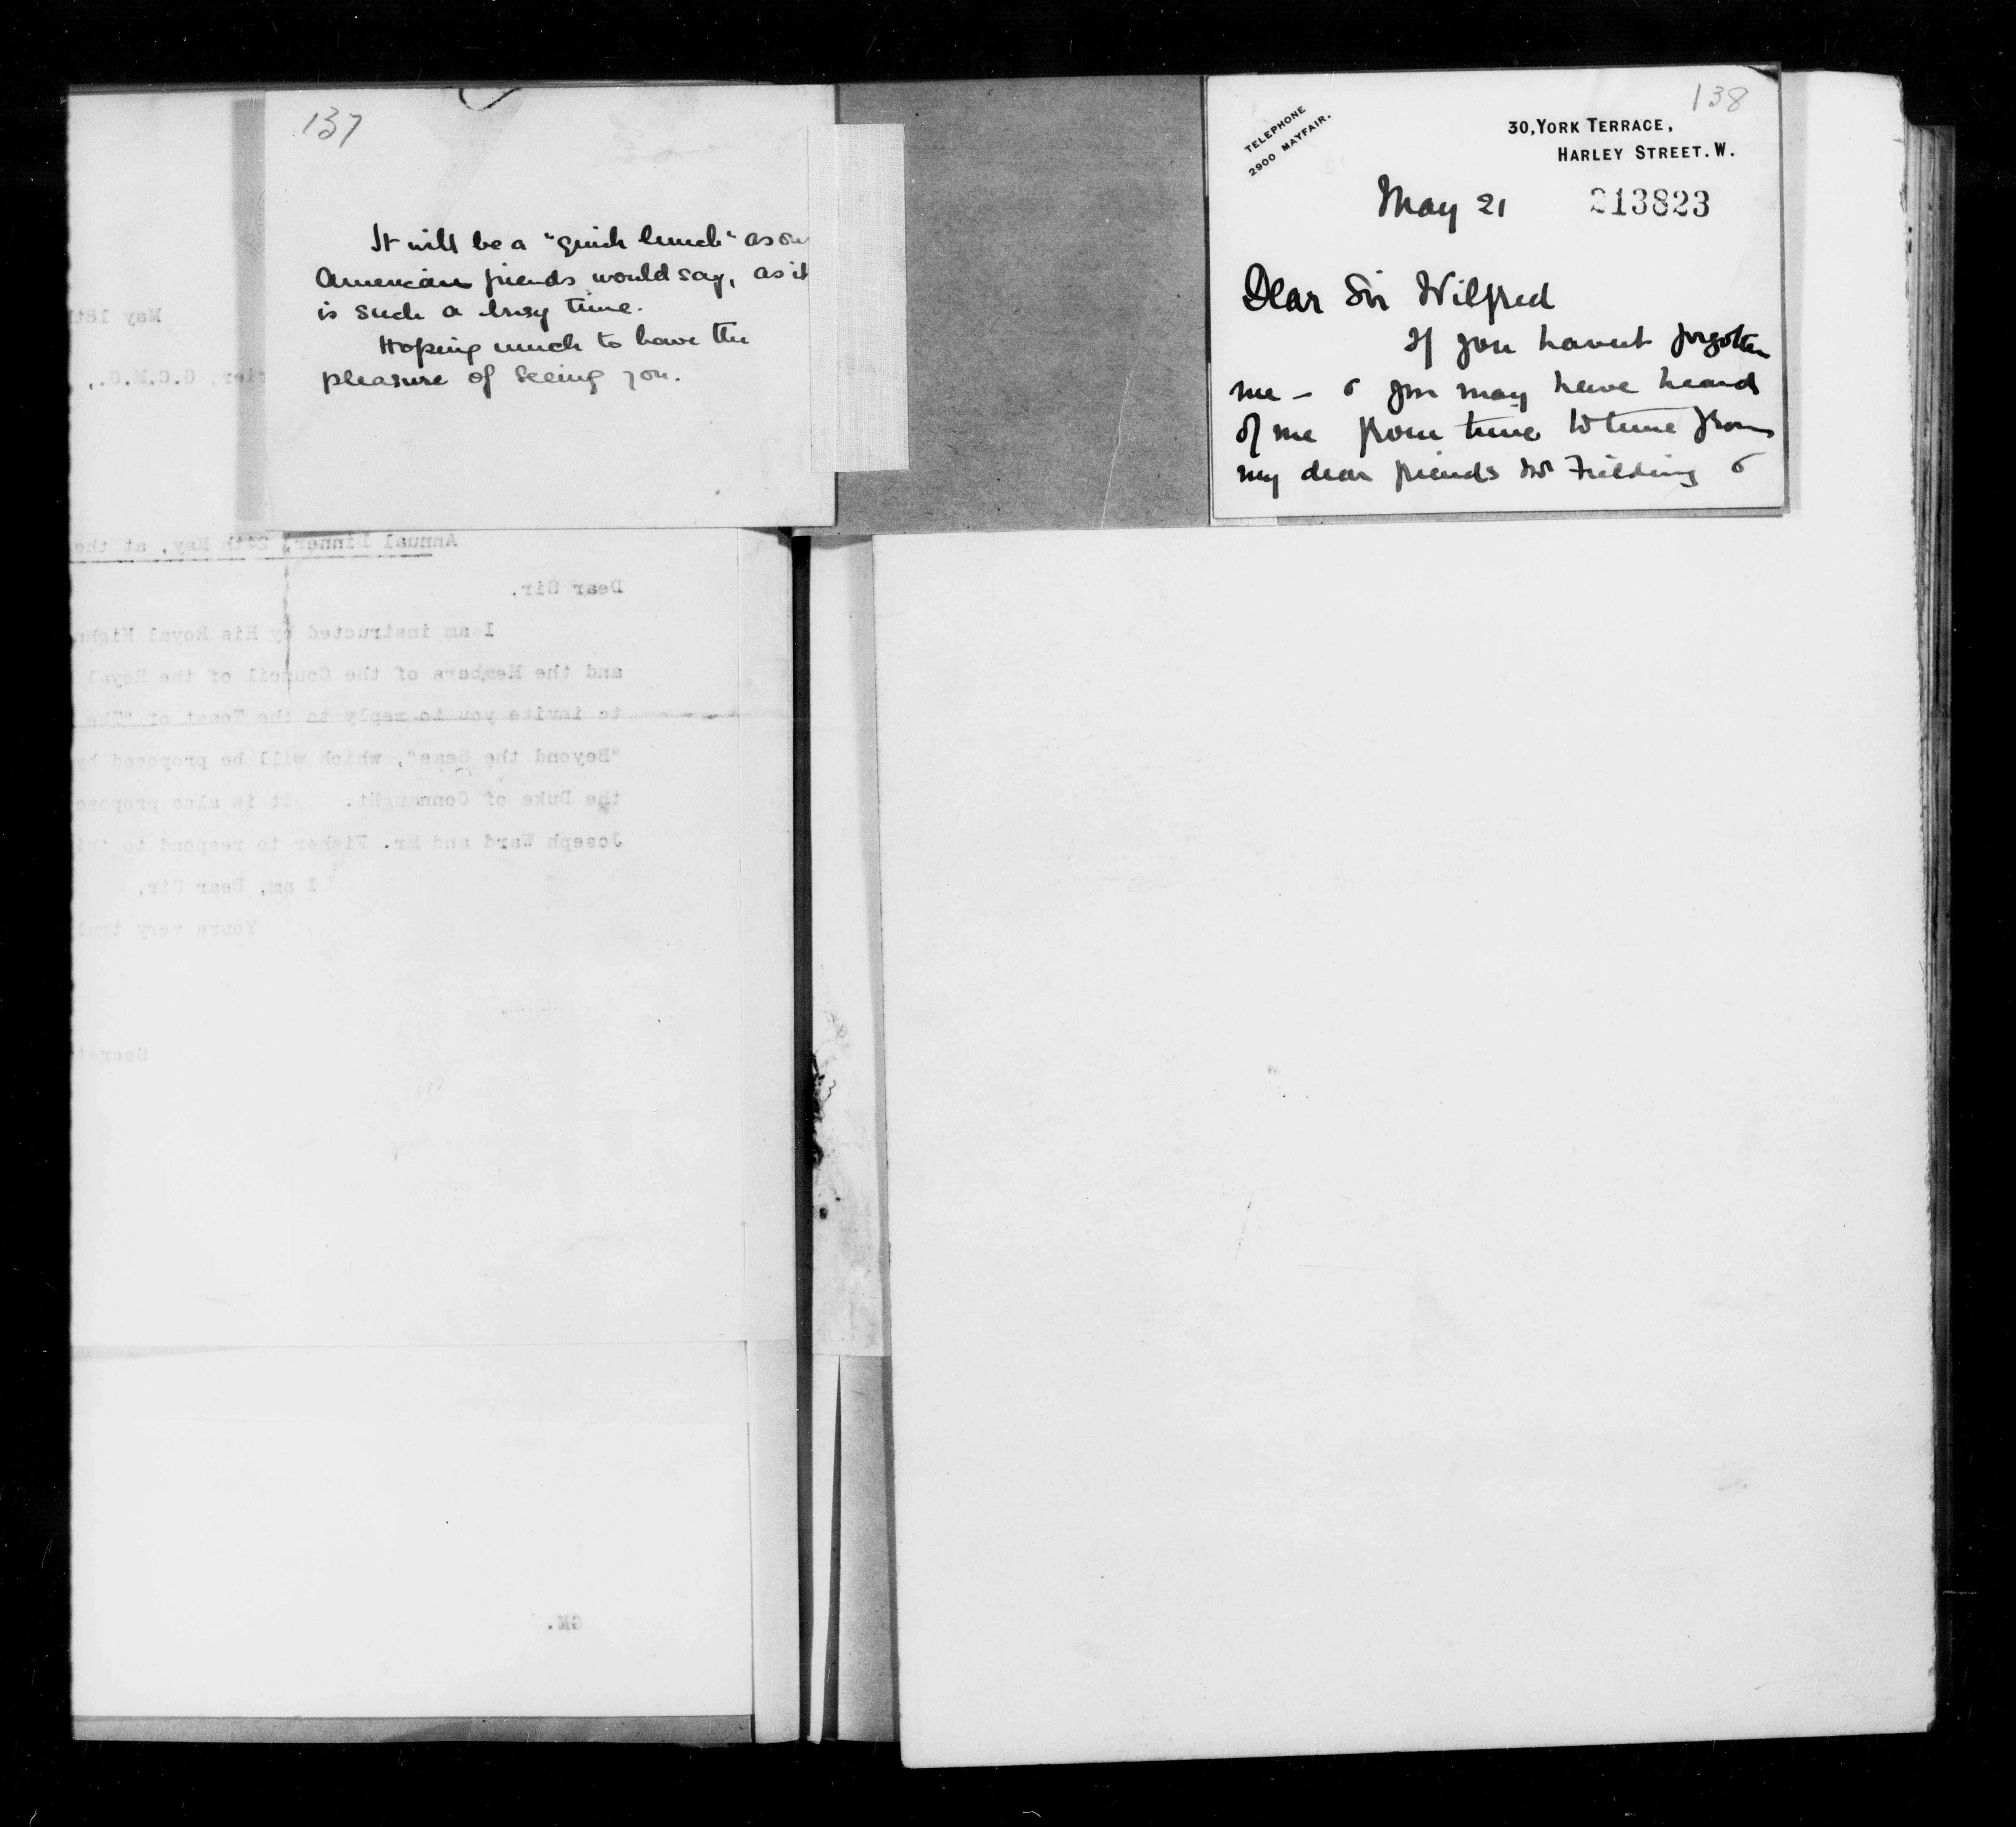 137
It will be a "quick lunch" as our
American friends would say, as it
is such a busy time.
Hoping much to have the
pleasure of seeing you.
May 18t
rier, G.C.M.G.,
Annual Dinner, 24th May, at the
Dear Sir,
I am instructed by His Royal Highn
and the Members of the Council of the Royal
to invite you to reply to the Toast of "The
"Beyond the Seas", which will be proposed by
the Duke of Connaught. It is also propose
Joseph Ward and Mr. Fisher to respond to thi
I am, Dear Sir,
Yours very trul
Secret
GM.
138
TELEPHONE
2900 MAYFAIR.
30, YORK TERRACE,
HARLEY STREET. W.
May 21 213823
Dear Sir Wilfred
If you havent forgotten
me - & you may have heard
of me from time to time from
my dear friends Mr Fielding &